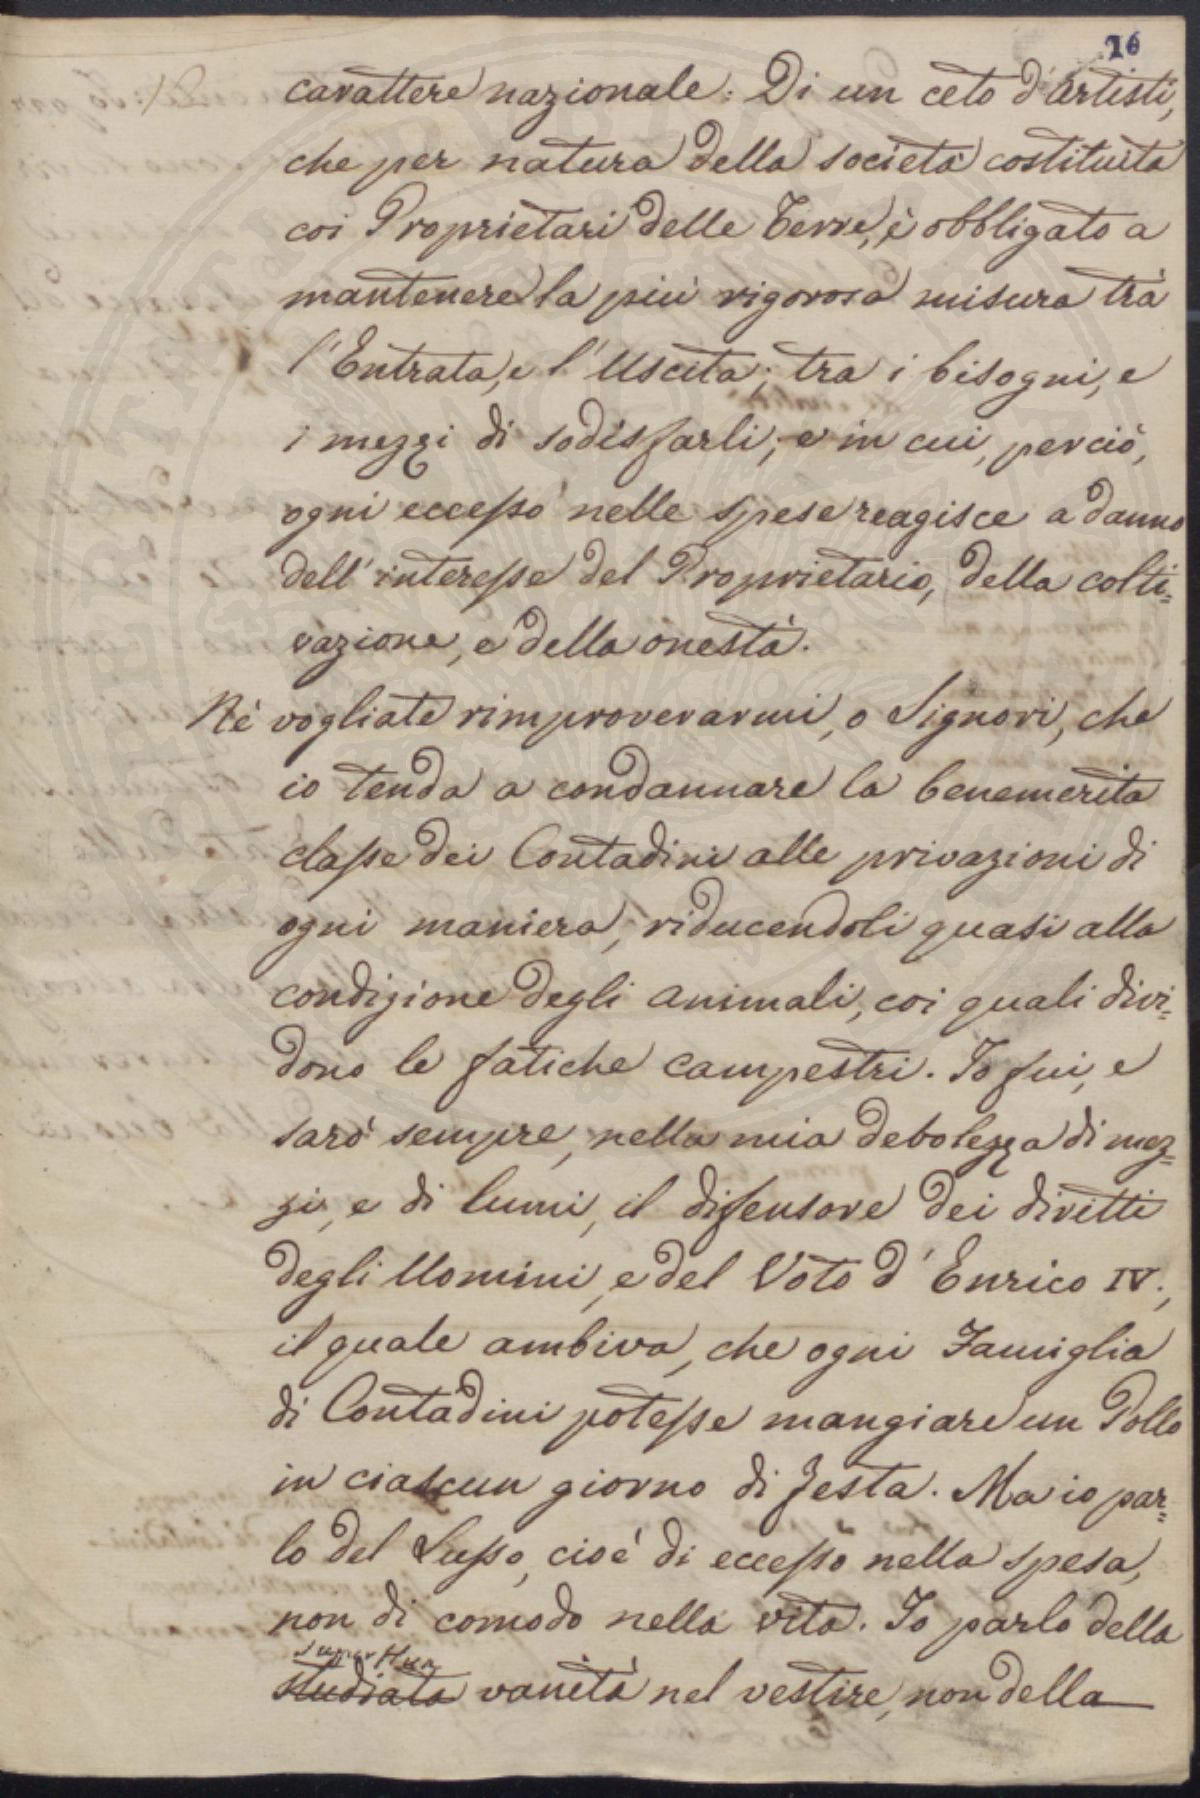 16
carattere nazionale: Di un ceto d'artisti,
che per natura della società costituita
coi Proprietarj delle Terre, è obbligato a
mantenere la più rigorosa misura trà
l'Entrata, e l'Uscita; tra i bisogni, e
i mezzi di sodisfarli; e in cui, perciò,
ogni eccesso nelle spese reagisce a danno
dell'interesse del Proprietario, della colti=
vazione, e della onestà.
Nè vogliate rimproverarmi, o Signori, che
io tenda a condannare la benemerita
classe dei Contadini alle privazioni di
ogni maniera, riducendoli quasi alla
condizione degli animali, coi quali divi=
dono le fatiche campestri. Io fui, e
sarò sempre, nella mia debolezza di mez=
zi, e di lumi, il difensore dei diritti
degli Uomini, e del Voto d'Enrico IV.,
il quale ambiva, che ogni Famiglia
di Contadini potesse mangiare un Pollo
in ciascun giorno di festa. Ma io par=
lo del Lusso, cioè di eccesso nella spesa,
non di comodo nella vita. Io parlo della
studiata vanità nel vestire, non della